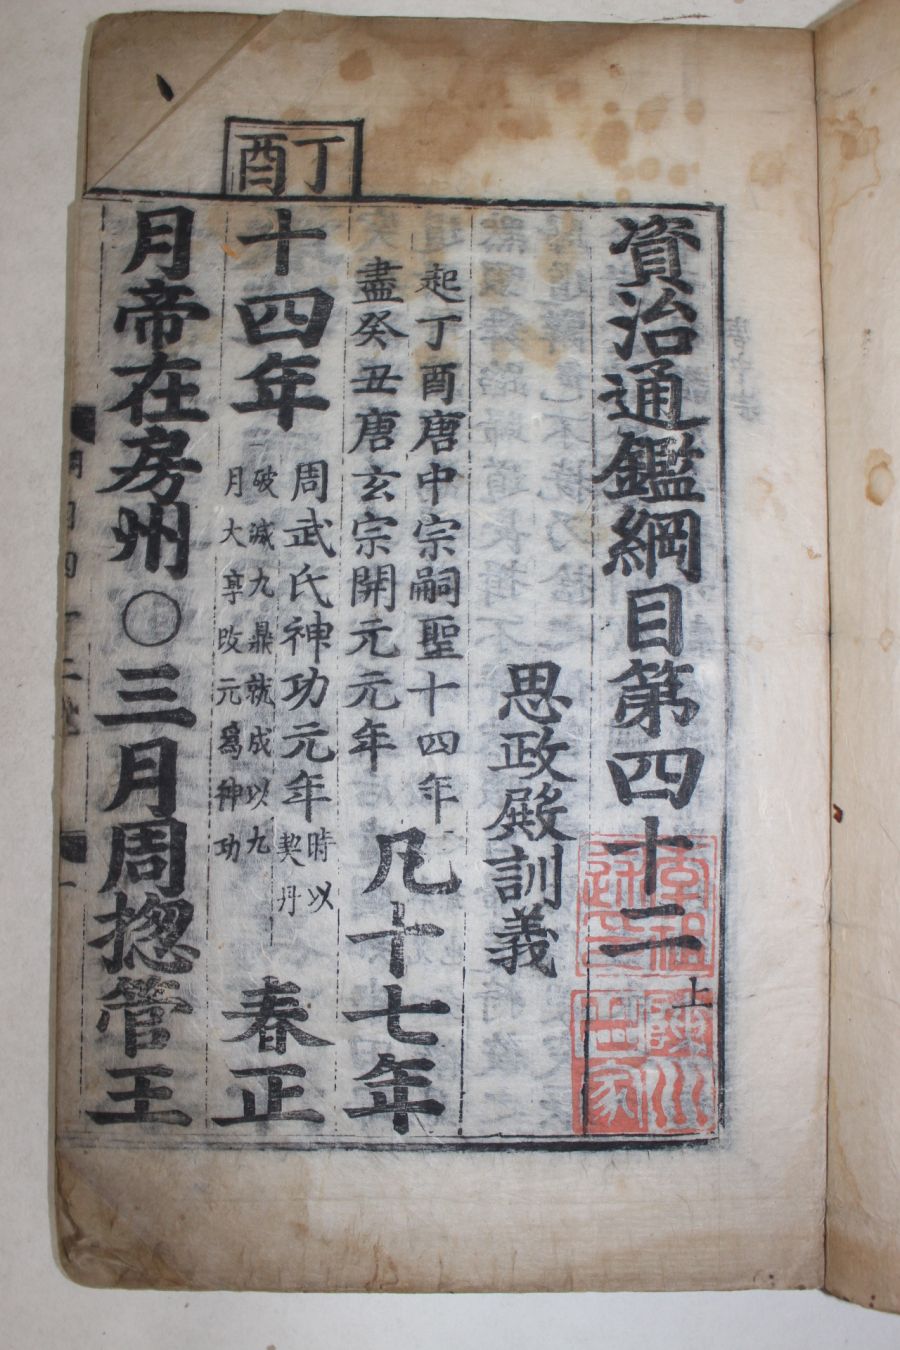 資治通鑑綱目第四十二上
思政殿訓義
起丁酉唐中宗嗣聖十四年
盡癸丑唐玄宗開元元年
凡十七年
丁酉
十四年
周武氏神功元年
時以契丹
破滅九鼎就成以九
月大享改元爲神功
春正
月帝在房州○三月周揔管王